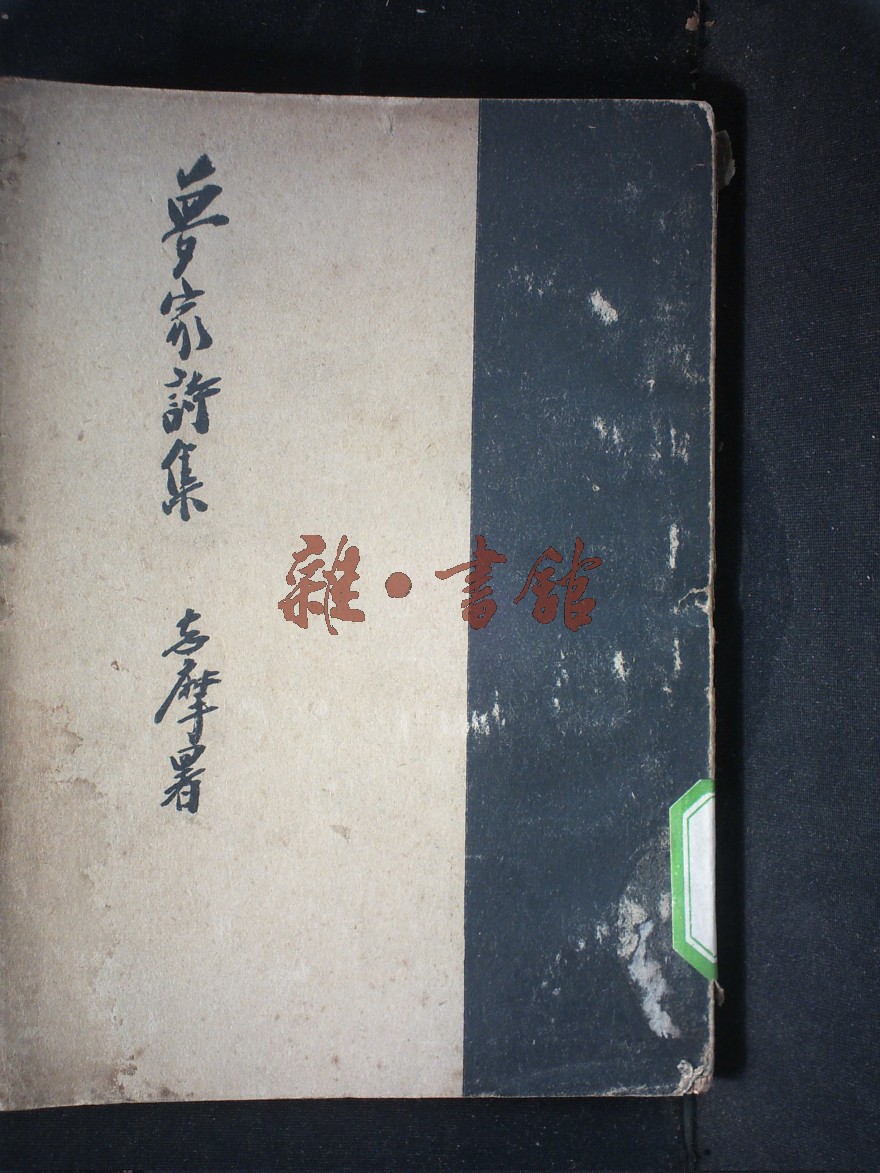 夢家詩集
志摩署
雜·書館